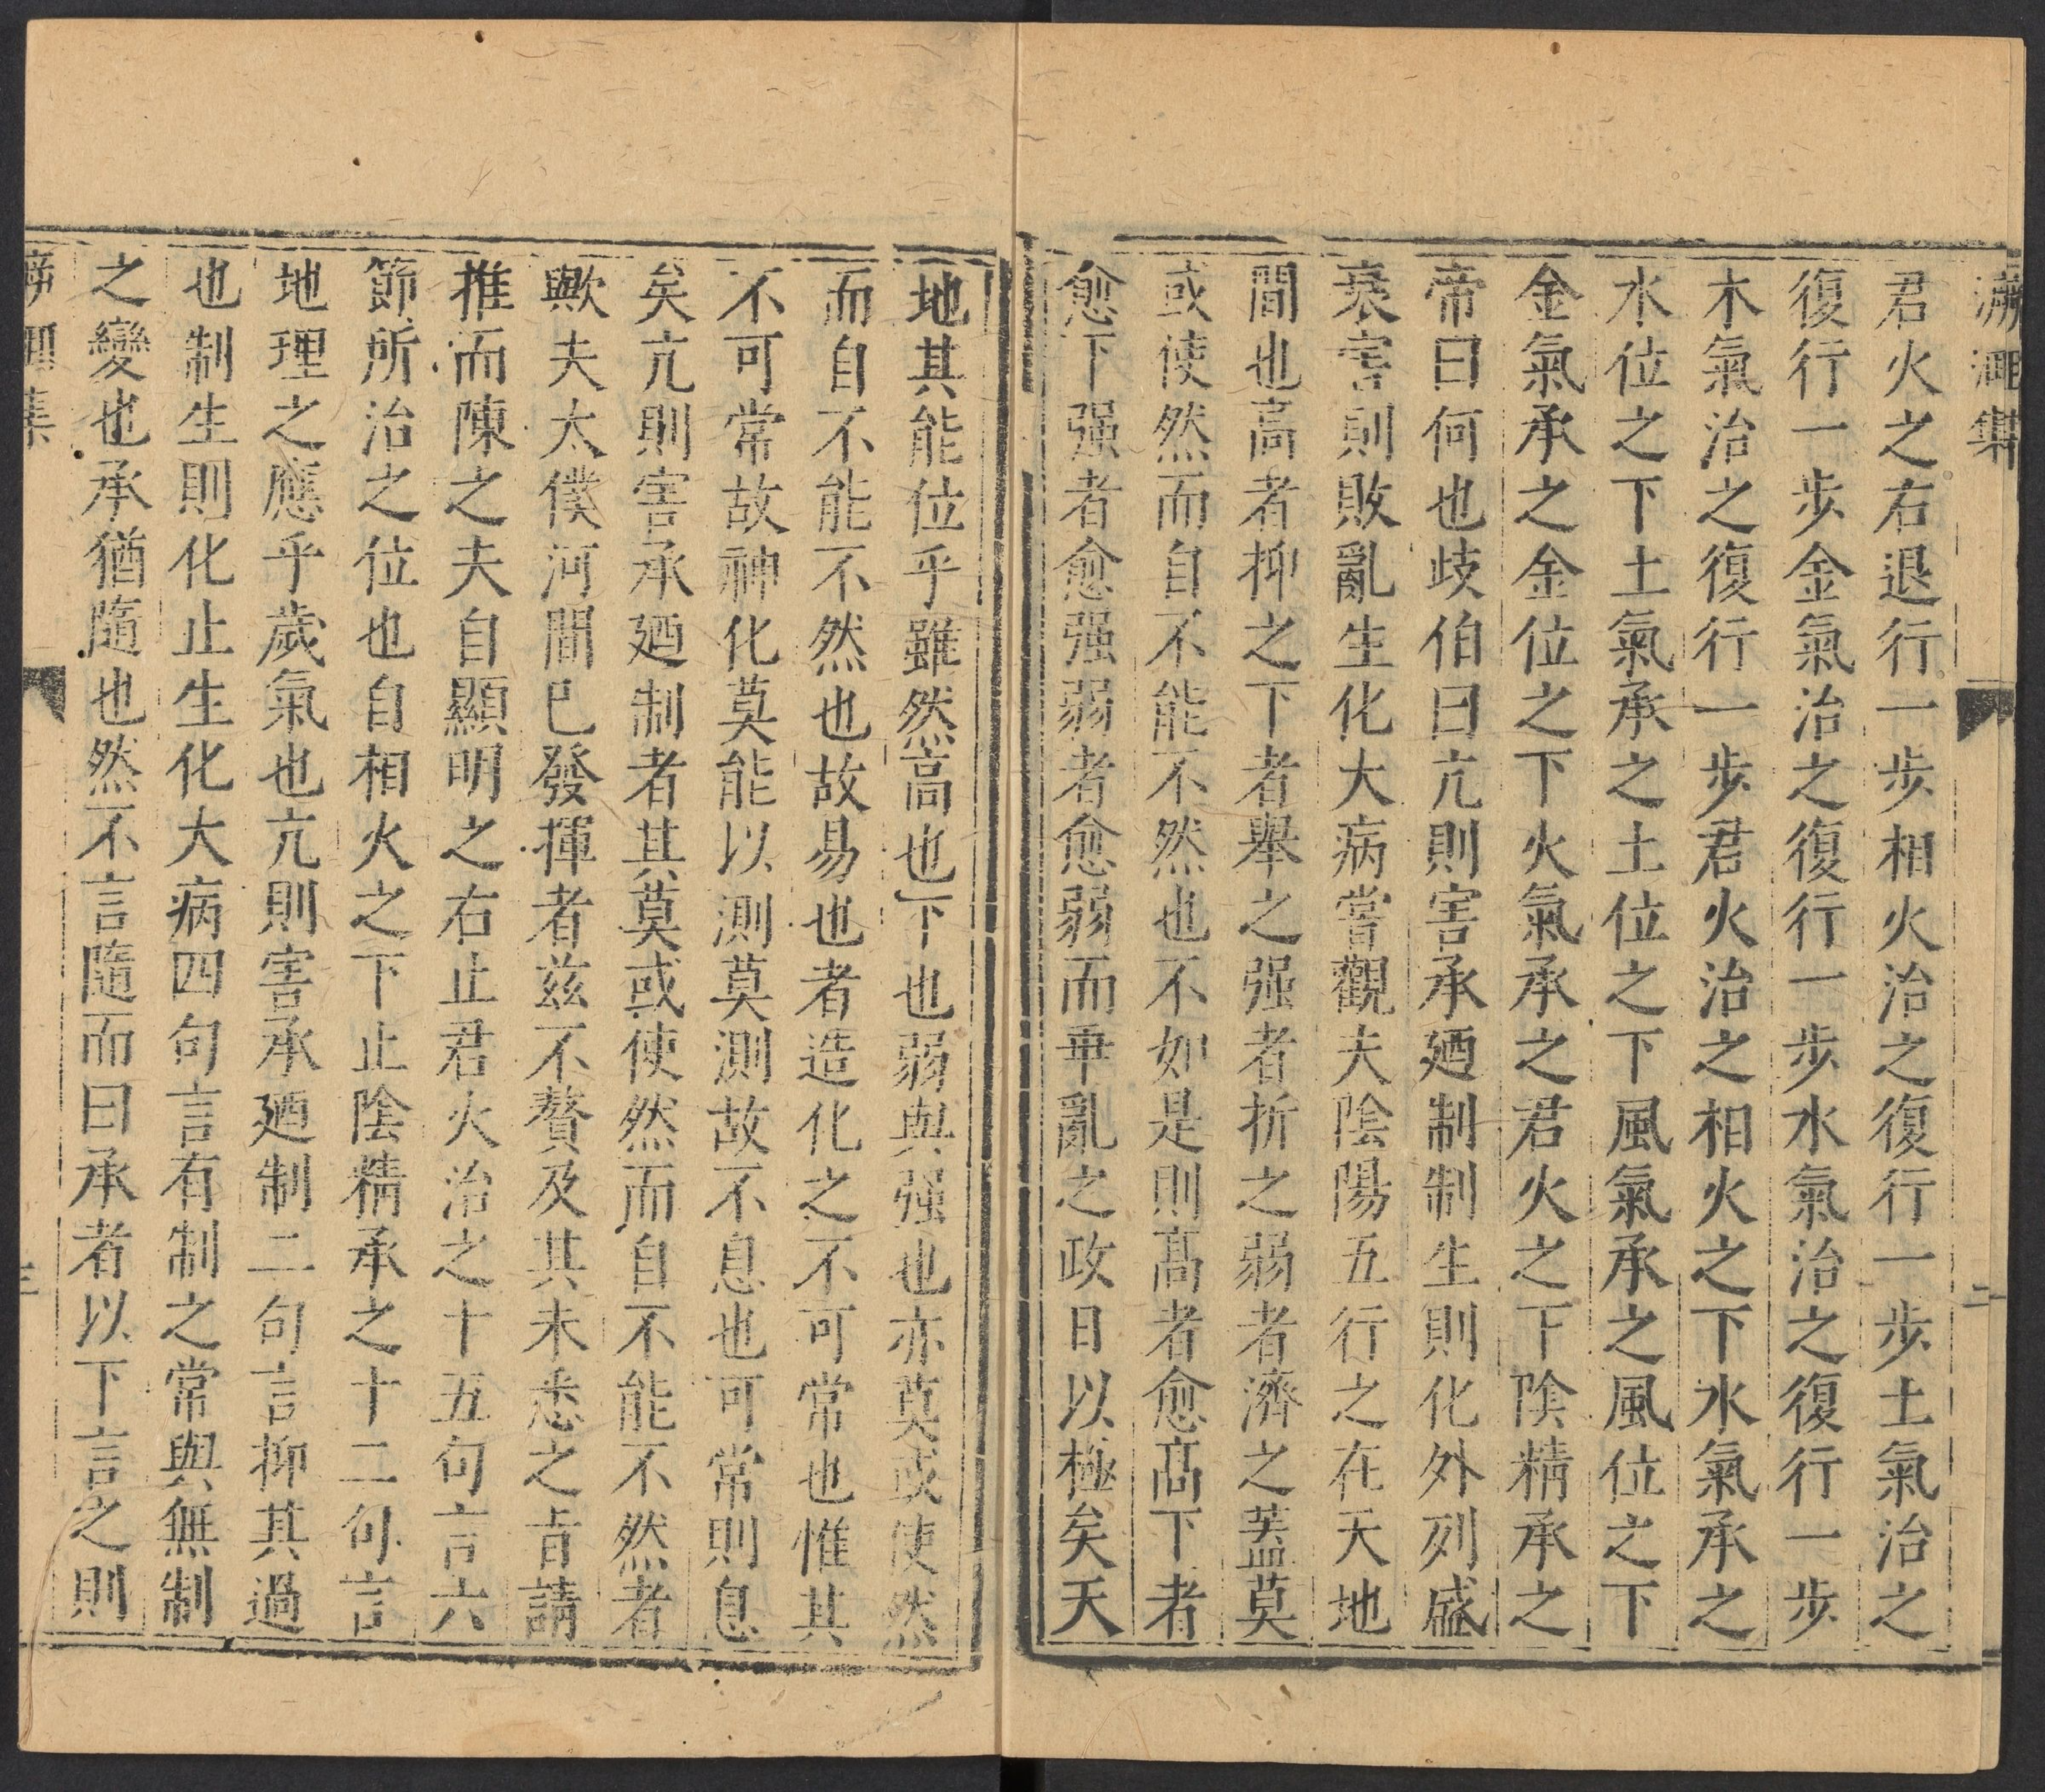 泝洄集
君火之右退行一步相火治之復行一步土氣治之
復行一步金氣治之復行一步水氣治之復行一步
木氣治之復行一步君火治之相火之下水氣承之
水位之下土氣承之土位之下風氣承之風位之下
金氣承之金位之下火氣承之君火之下陰精承之
帝曰何也歧伯曰亢則害承廼制制生則化外列盛
衰害則敗亂生化大病嘗觀夫陰陽五行之在天地
間也高者抑之下者舉之强者折之弱者濟之蓋莫
或使然而自不能不然也不如是則髙者愈髙下者
愈下强者愈强弱者愈弱而乖亂之政日以極矣天
二
地其能位乎雖然高也下也弱與强也亦莫或使然
而自不能不然也故易也者造化之不可常也惟其
不可常故神化莫能以測莫測故不息也可常則息
矣亢則害承廼制者其莫或使然而自不能不然者
歟夫太僕河間已發揮者兹不贅及其未悉之旨請
推而陳之夫自顯明之右止君火治之十五句言六
節所治之位也自相火之下止陰精承之十二句言
地理之應乎歲氣也亢則害承廼制二句言抑其過
也制生則化止生化大病四句言有制之常與無制
之變也承猶隨也然不言隨而曰承者以下言之則
三